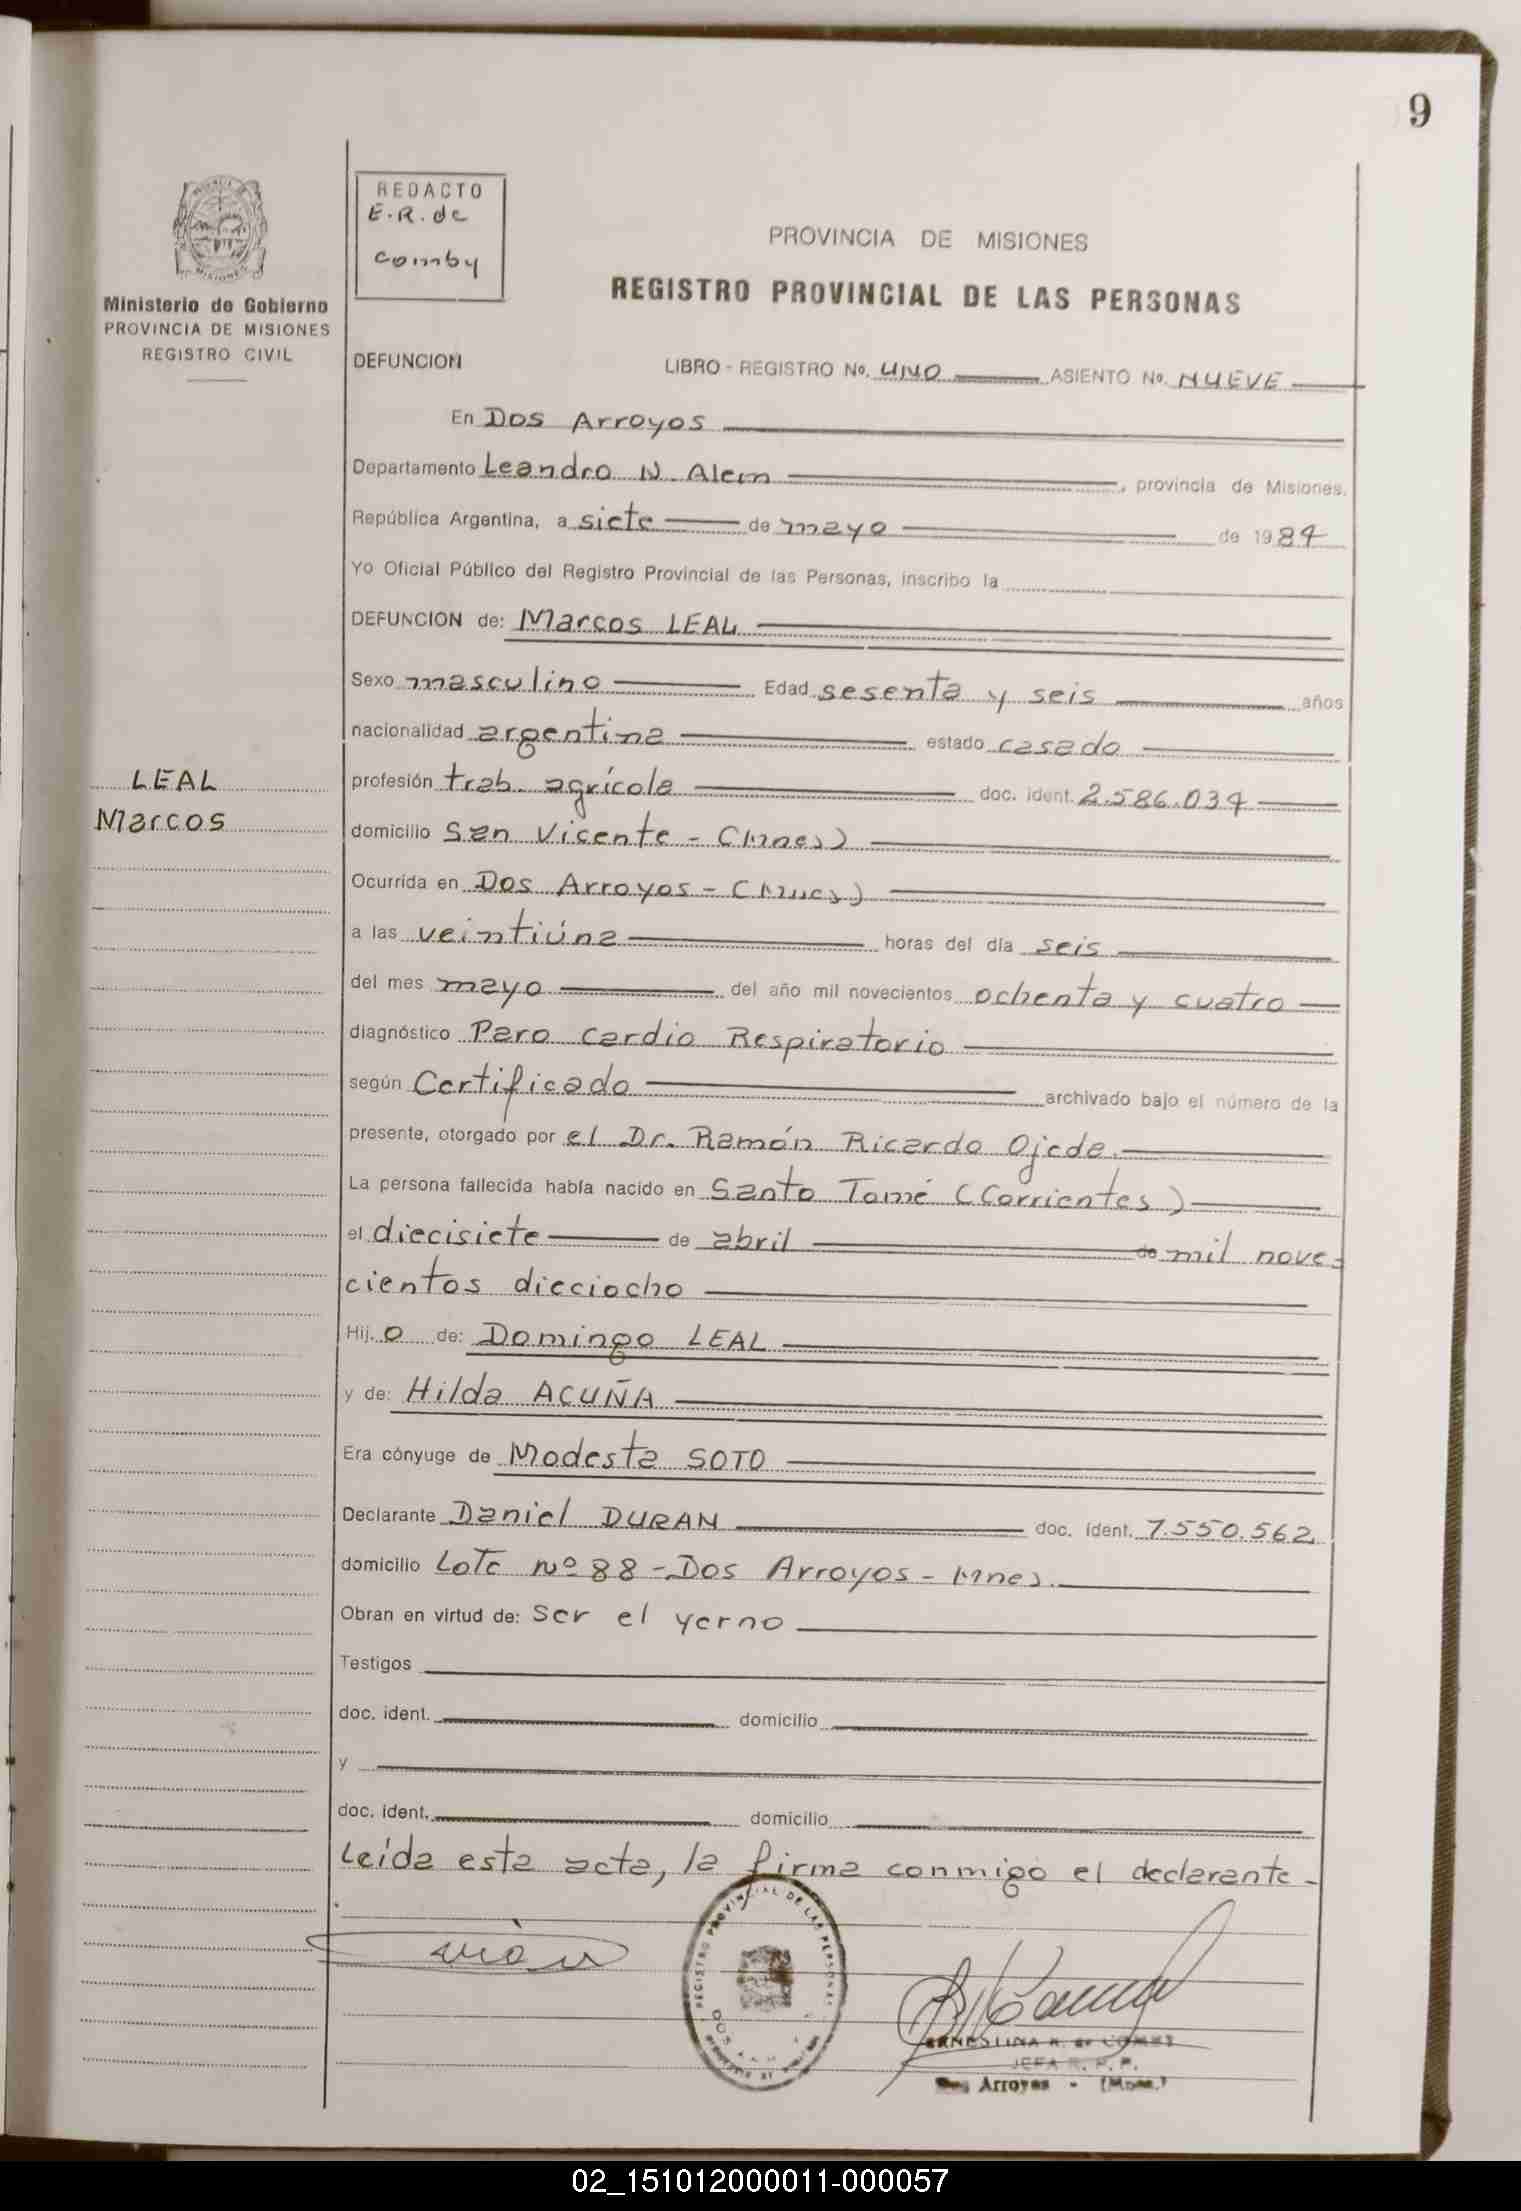 9
REDACTO
E.R. de
Comby
PROVINCIA DE MISIONES
REGISTRO PROVINCIAL DE LAS PERSONAS
Ministerio de Gobierno
PROVINCIA DE MISIONES
REGISTRO CIVIL
DEFUNCION LIBRO - REGISTRO No. UNO ASIENTO No. NUEVE
En Dos Arroyos
Departamento Leandro N. Alem, provincia de Misiones.
República Argentina, a siete de mayo de 1984
Yo Oficial Público del Registro Provincial de las Personas, inscribo la
DEFUNCION de: Marcos LEAL
Sexo masculino Edad sesenta y seis años
nacionalidad argentina estado casado
LEAL
Marcos
profesión trab. agrícola doc. ident. 2.586.034
domicilio San Vicente - (Mnes)
Ocurrida en Dos Arroyos - (Mnes)
a las veintiúna horas del día seis
del mes mayo del año mil novecientos ochenta y cuatro
diagnóstico Paro Cardio Respiratorio
según Certificado archivado bajo el número de la
presente, otorgado por el Dr. Ramón Ricardo Ojeda.
La persona fallecida había nacido en Santo Tomé (Corrientes)
el diecisiete de abril de mil nove-
cientos dieciocho
Hijo de: Domingo LEAL
y de: Hilda ACUÑA
Era cónyuge de Modesta SOTO
Declarante Daniel DURAN doc. ident. 7.550.562
domicilio Lote nº 88 - Dos Arroyos - Mnes.
Obran en virtud de: Ser el yerno
Testigos
doc. ident. domicilio
y
doc. ident. domicilio
Leída esta acta, la firma conmigo el declarante -
REGISTRO PROVINCIAL DE LAS PERSONAS
ERNESTINA R. de COMBY
JEFA R. P. P.
Dos Arroyos - (Mnes.)
02_151012000011-000057